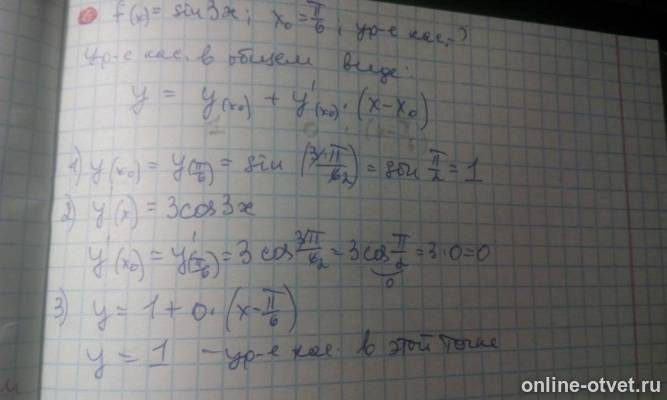 f(x) = sin3x; x₀ = π/6, ур-е кас.-?
Ур-е кас. в общем виде:
y = y(x₀) + y'(x₀)·(x-x₀)
1) y(x₀) = y(π/6) = sin (3·π/6 2) = sin π/2 = 1
2) y'(x) = 3cos3x
y'(x₀) = y'(π/6) = 3 cos 3π/6 2 = 3 cos π/2 = 3·0=0
0
3) y = 1 + 0·(x-π/6)
y = 1 - ур-е кас. в этой точке
online-otvet.ru